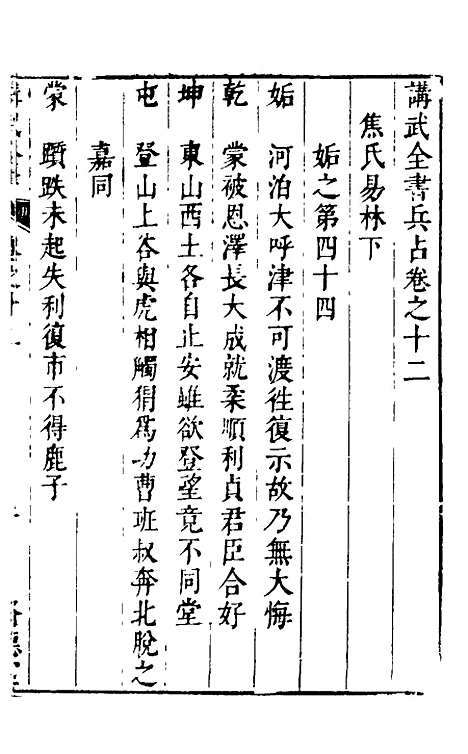 講武全書兵占卷之十二
焦氏易林下
姤之第四十四
姤　河泊大呼津不可渡徃復示故乃無大悔
乾　蒙被恩澤長大成就柔順利貞君臣合好
坤　東山西土各自止安雖欲登望竟不同堂
屯　登山上谷與虎相觸猬爲功曹班叔奔北脫之
嘉同
蒙　蹟跌未起失利復市不得鹿子